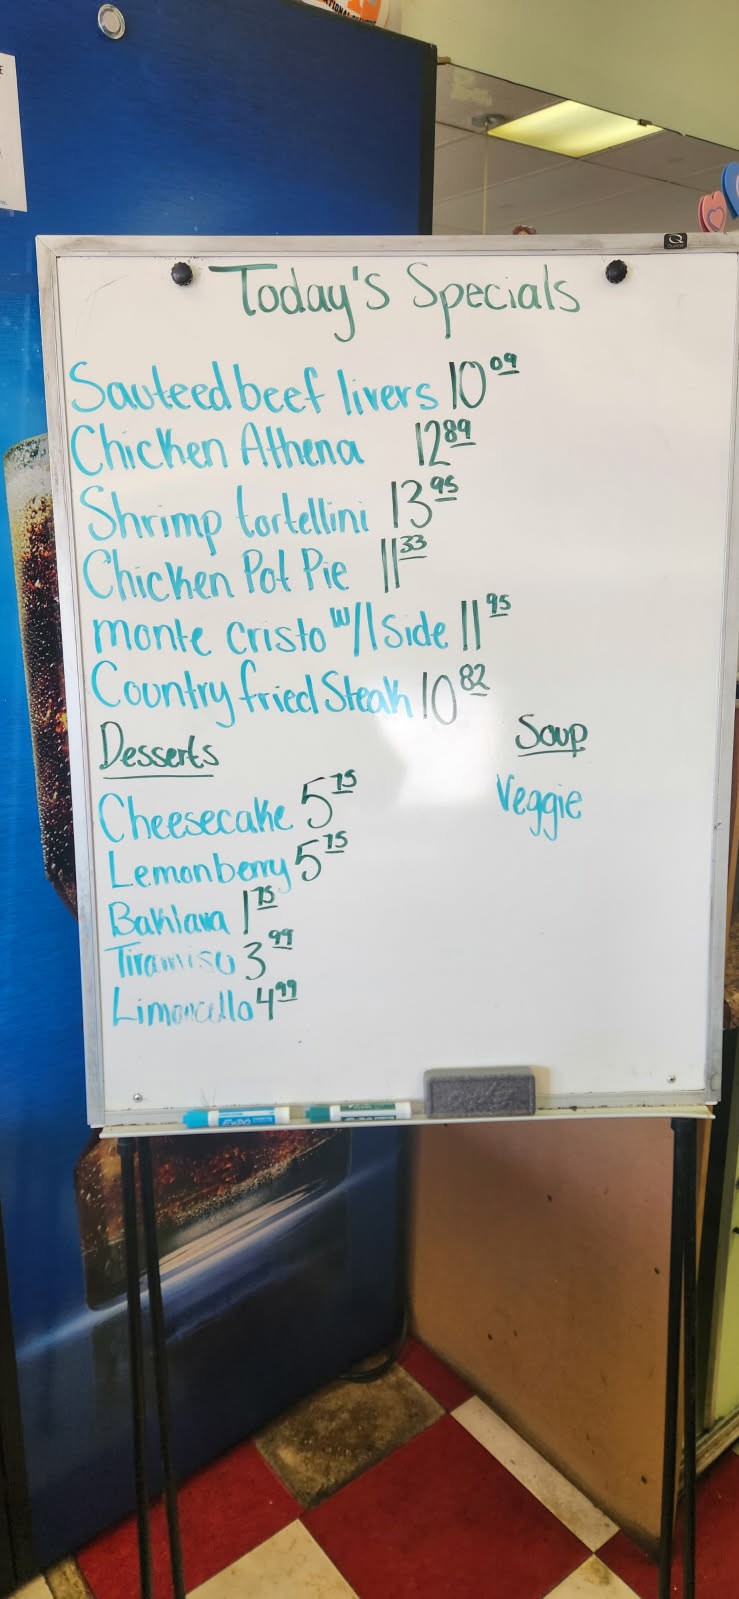 Today's Specials
Sauteed beef livers 10 09
Chicken Athena 12 89
Shrimp tortellini 13 95
Chicken Pot Pie 11 33
monte cristo w/1 Side 11 95
Country fried Steak 10 82
Desserts
Cheesecake 5 75
Lemonberry 5 75
Baklava 1 75
Tiramisu 3 99
Limoncello 4 99
Soup
Veggie